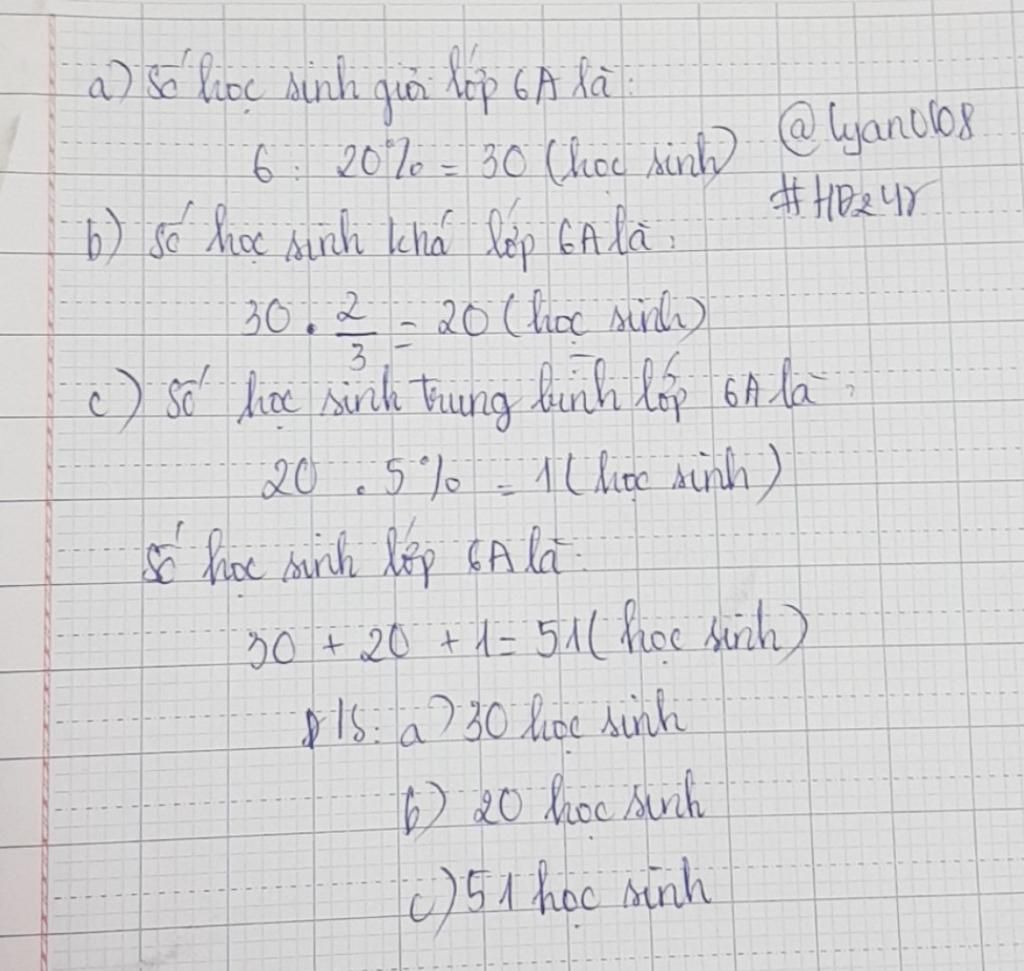 a) Số học sinh giỏi lớp 6A là:
6 : 20% = 30 (học sinh)
@lyan0108
#HD247
b) Số học sinh khá lớp 6A là:
30 . 2/3 = 20 (học sinh)
c) Số học sinh trung bình lớp 6A là:
20 . 5% = 1 (học sinh)
Số học sinh lớp 6A là:
30 + 20 + 1 = 51 (học sinh)
Đ/S: a) 30 học sinh
b) 20 học sinh
c) 51 học sinh